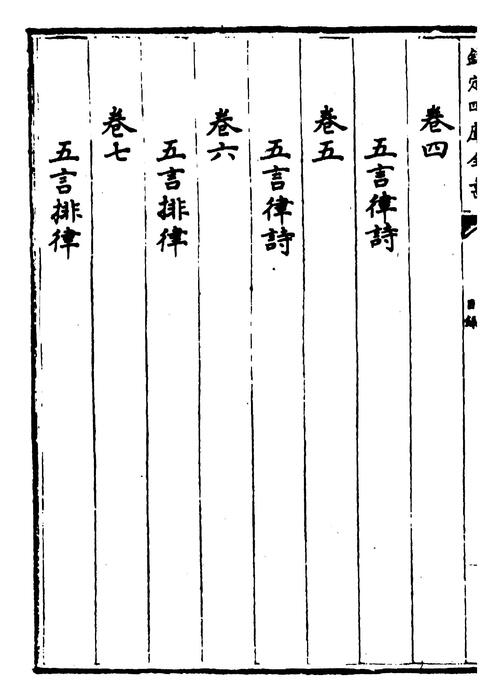 欽定四庫全書
目録
卷四
五言律詩
卷五
五言律詩
卷六
五言排律
卷七
五言排律